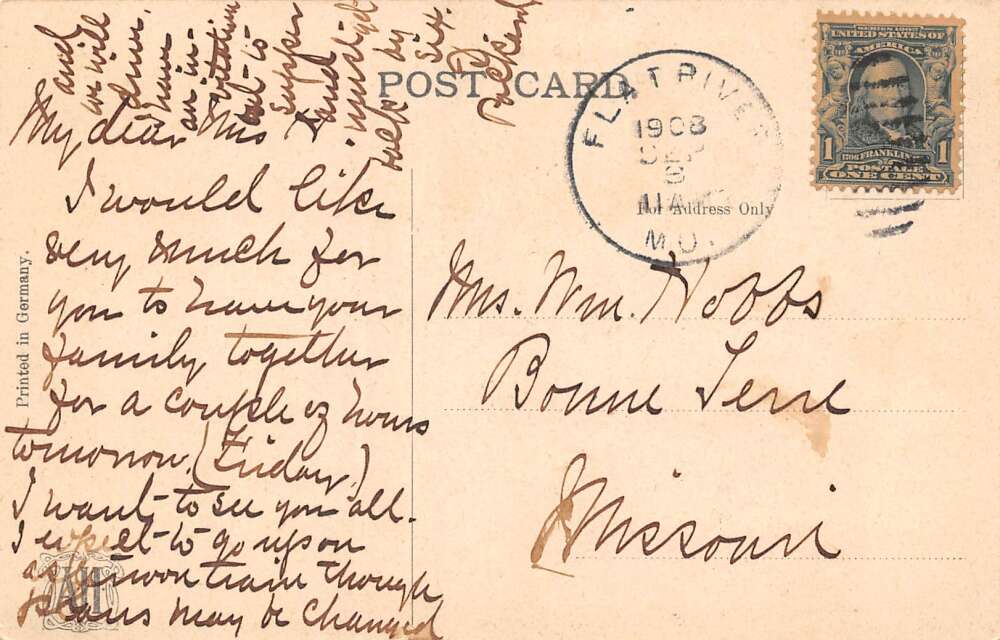 POST CARD
FLAT RIVER
1908
MO.
SERIES 1902
UNITED STATES OF
AMERICA
1 1706 FRANKLIN 1
POSTAGE
ONE CENT
For Address Only
Mrs. Wm. Nobbs
Bonne Terre
Missouri
Printed in Germany.
My dear Mrs
I would like
very much for
you to have your
family together
for a couple of hours
tomorrow. (Friday.)
I want to see you all.
I expect to go up on
noon train though
plans may be changed
and
we will
have
an in-
vitation
out to
supper
and
must get
back by
six.